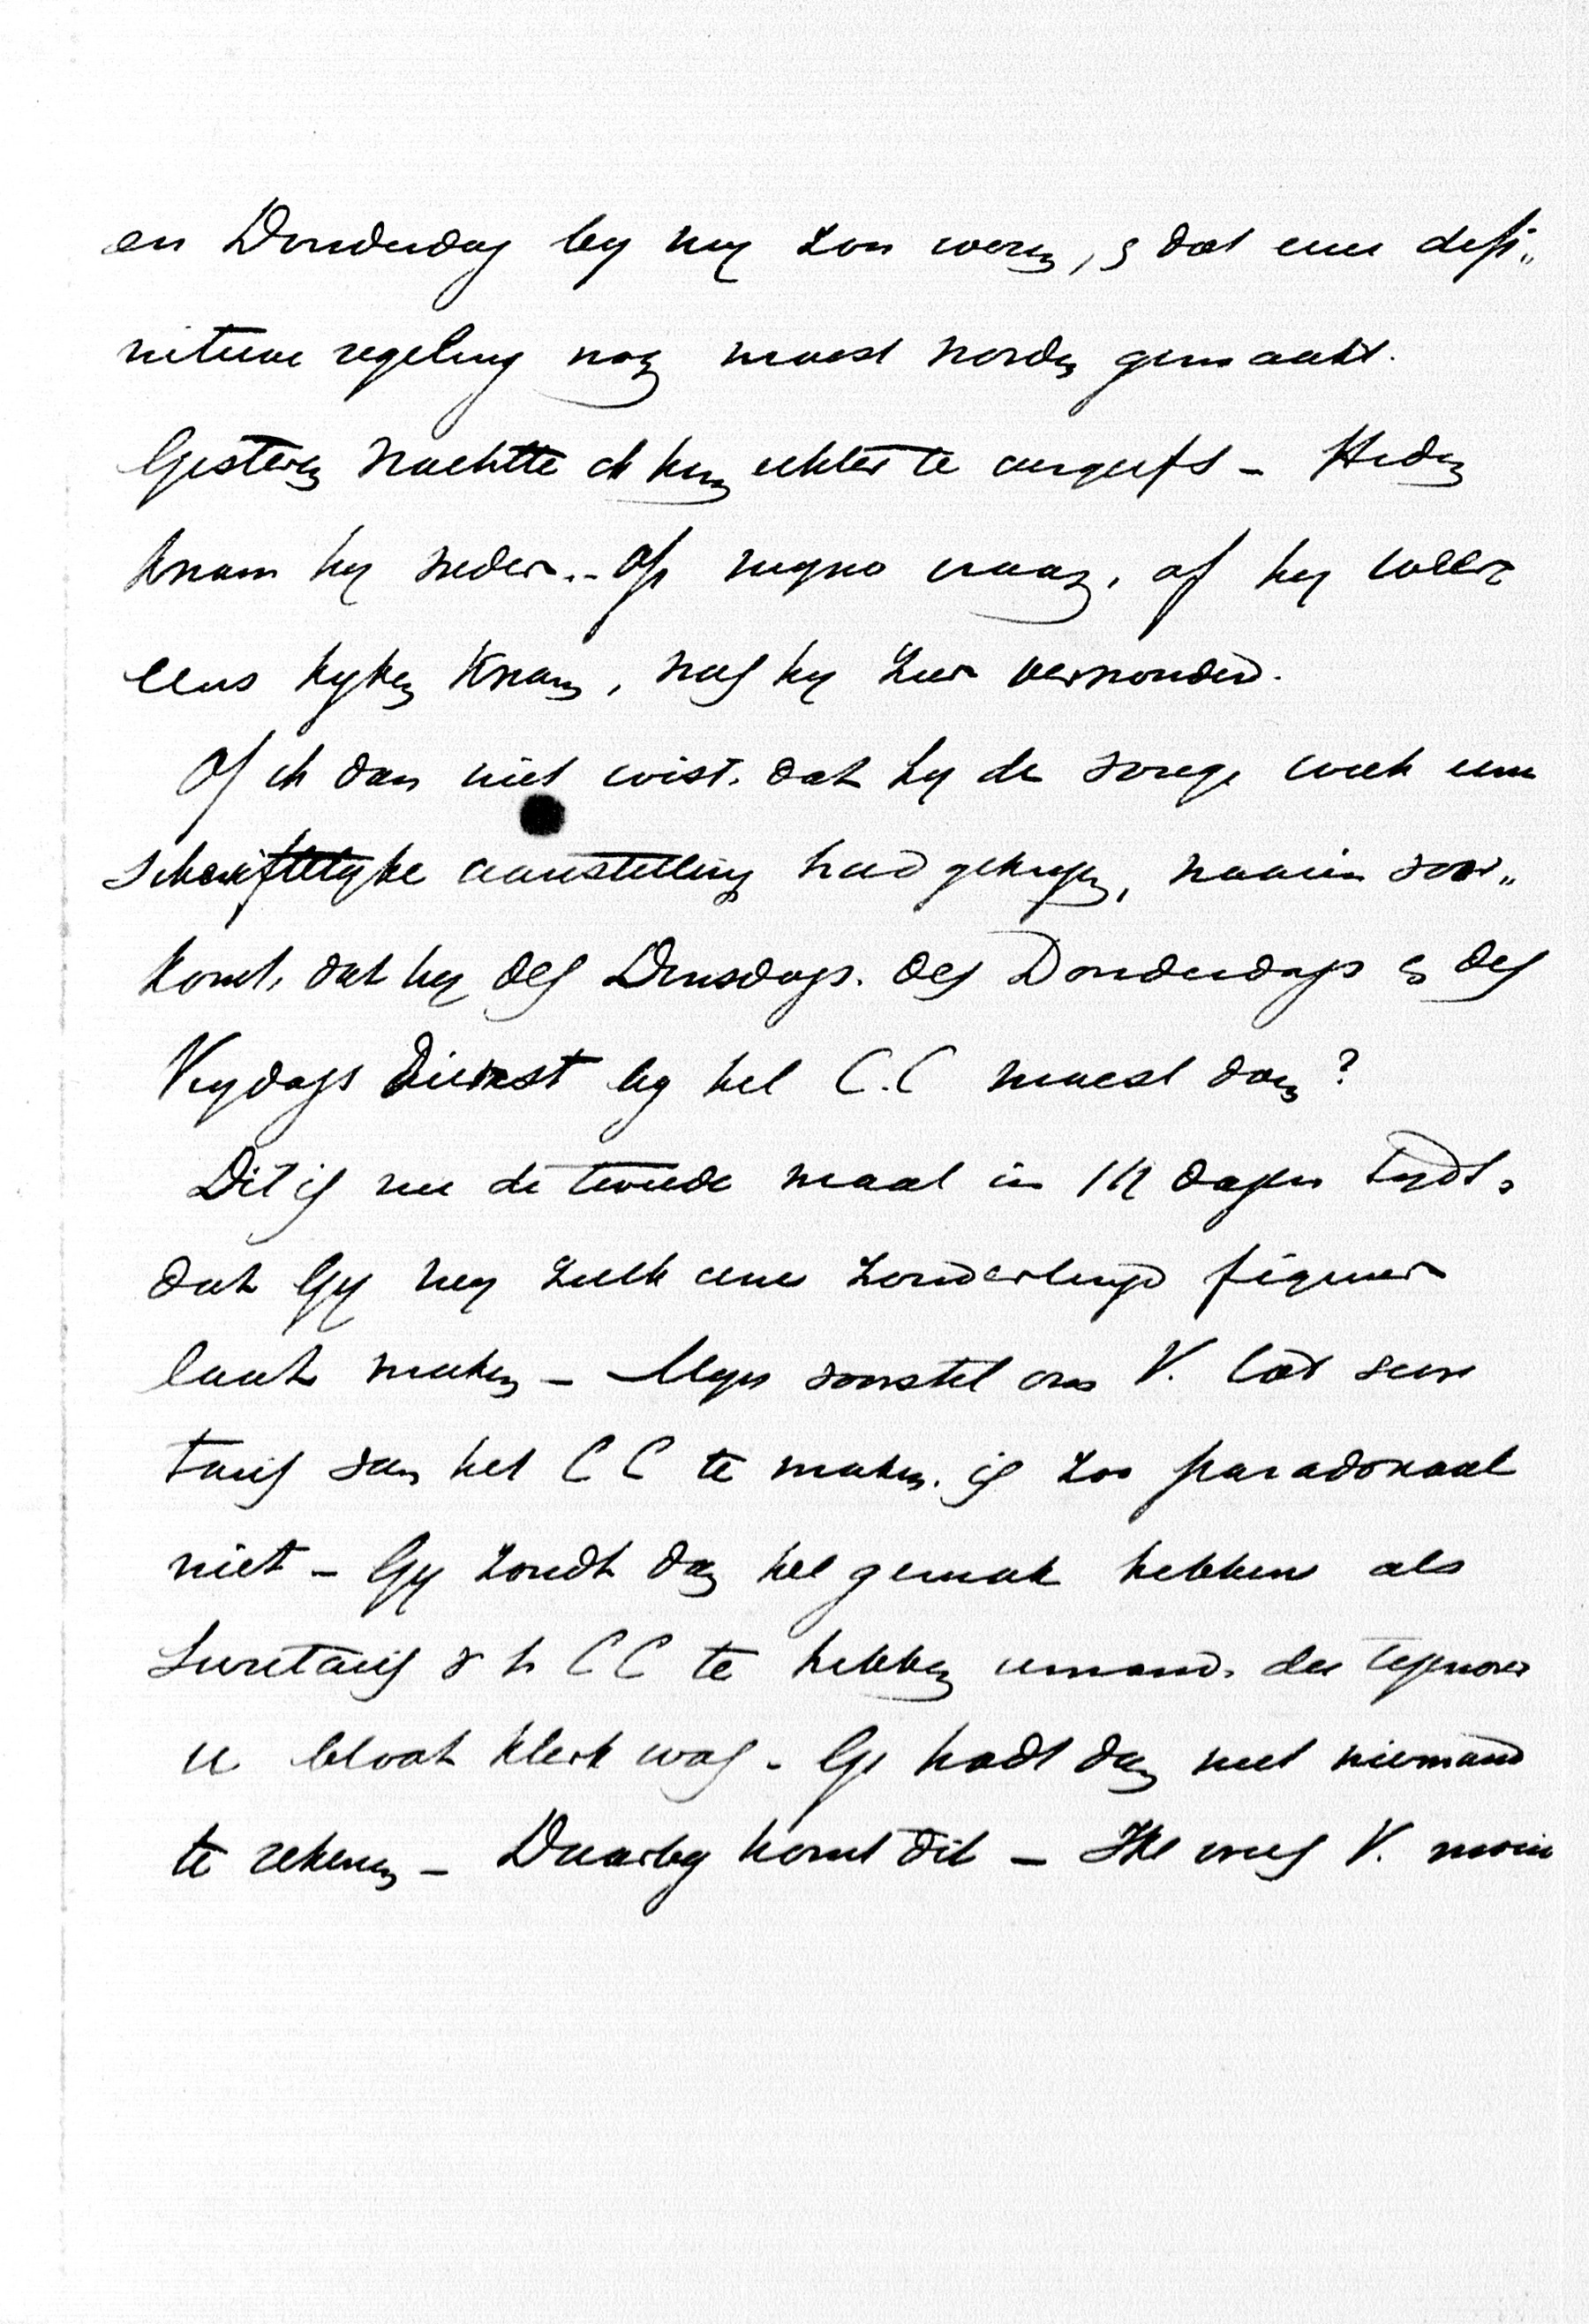 en Donderdag by my zou wezen, & dat eene defi„
nitieve regeling nog moest worden gemaakt.
Gisteren wachtte ik hem echter te vergeefs – Heden
kwam hy weder.. Op myne vraag, of hy weer
eens kyken kwam, was hy zeer verwonderd.
Of ik dan niet wist, dat hy de vorige week eene
schriftelyke aanstelling had gekregen, waarin voor„
komt, dat hy des Dinsdags, des Donderdags & des
Vrydags dienst by het C.C moest doen?
Dit is nu de tweede maal in 14 dagen tyds,
dat Gy my zulk eene zonderlinge figuur
laat maken – Myn voorstel om V. tot secre
taris van het CC te maken, is zoo paradoxaal
niet – Gy zoudt dan het gemak hebben als
Secretaris v h CC te hebben iemand, die tegenover
u bloot klerk was – Gy hadt dan met niemand
te rekenen – Daarby komt dit – Ik wees V. mijn